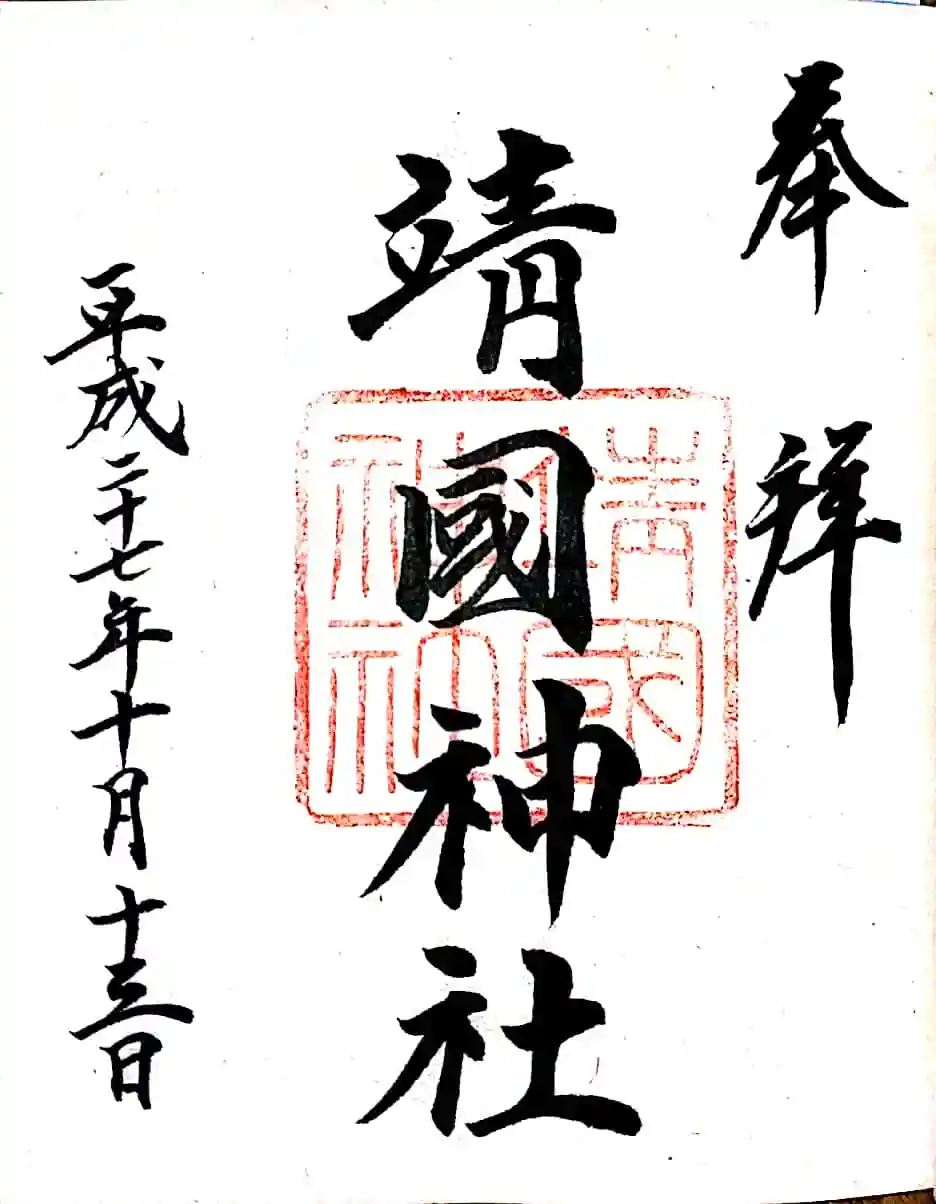 奉拜
靖國神社
靖國神社
平成二十七年十月十三日